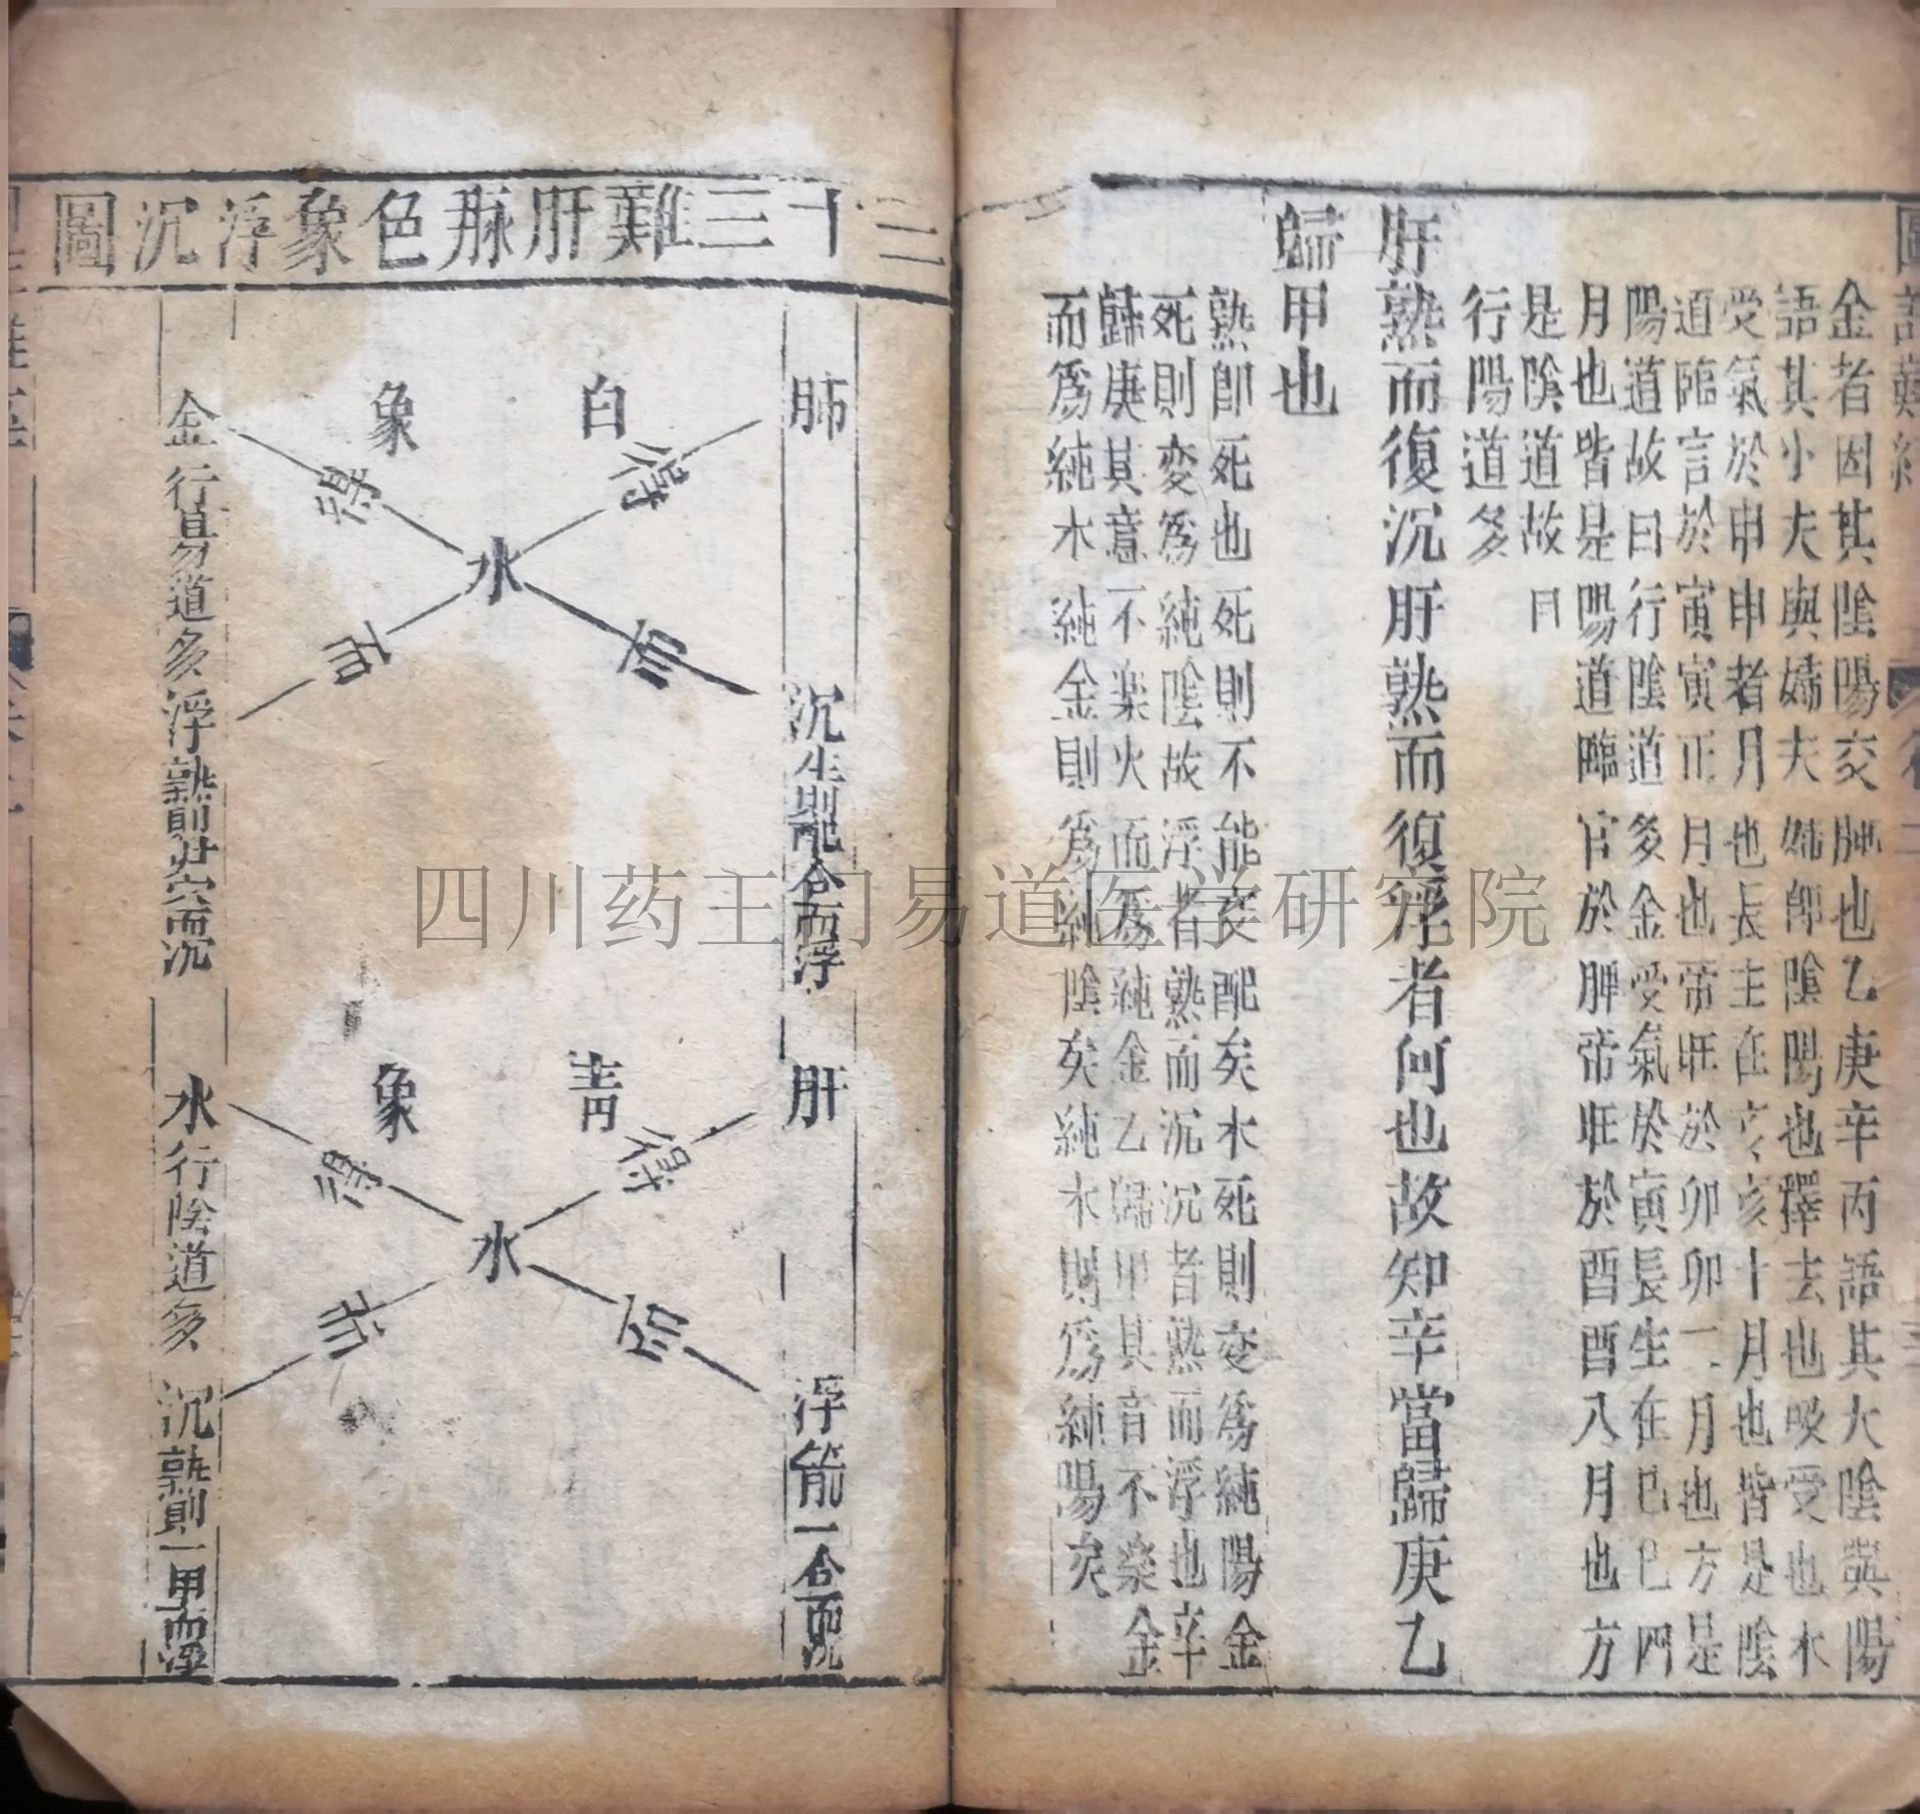 金者因其陰陽交肿也乙庚辛丙語其大陰與陽
語其小夫與嬌夫嫲即陰陽也擇去也吸受也木
受氣於申申者月也長主在亥亥十月也皆是陰
道臨官於寅寅正月也帝旺於卯卯二月也方是
陽道故曰行陰道多金受氣於寅長生在巳巳四
月也皆是陽道臨官於脾帝旺於酉酉八月也方
是陰道故曰
行陽道多
肝熟而復沉肝肝熟而復浮者何也故知辛當歸庚乙
歸甲也
熟即死也死則不能交配矣木死則变為純陽金
死則变為純陰故浮者熟而沉沉者熟而浮也辛
歸庚其意不楽火而為純金乙歸甲其音不楽金
而為純木純金則為純陰矣純木則為純陽矣
二十三難肝脈色象浮沉圖
肺
沉
生則配合而浮
白
象
得
得
水
金
行昜道多
浮
熟則

沉
肝
浮
一合而沉
青
象
得
得
水
水
行陰道多
沉
熟則一甲而浮
四川药王门易道医学研究院